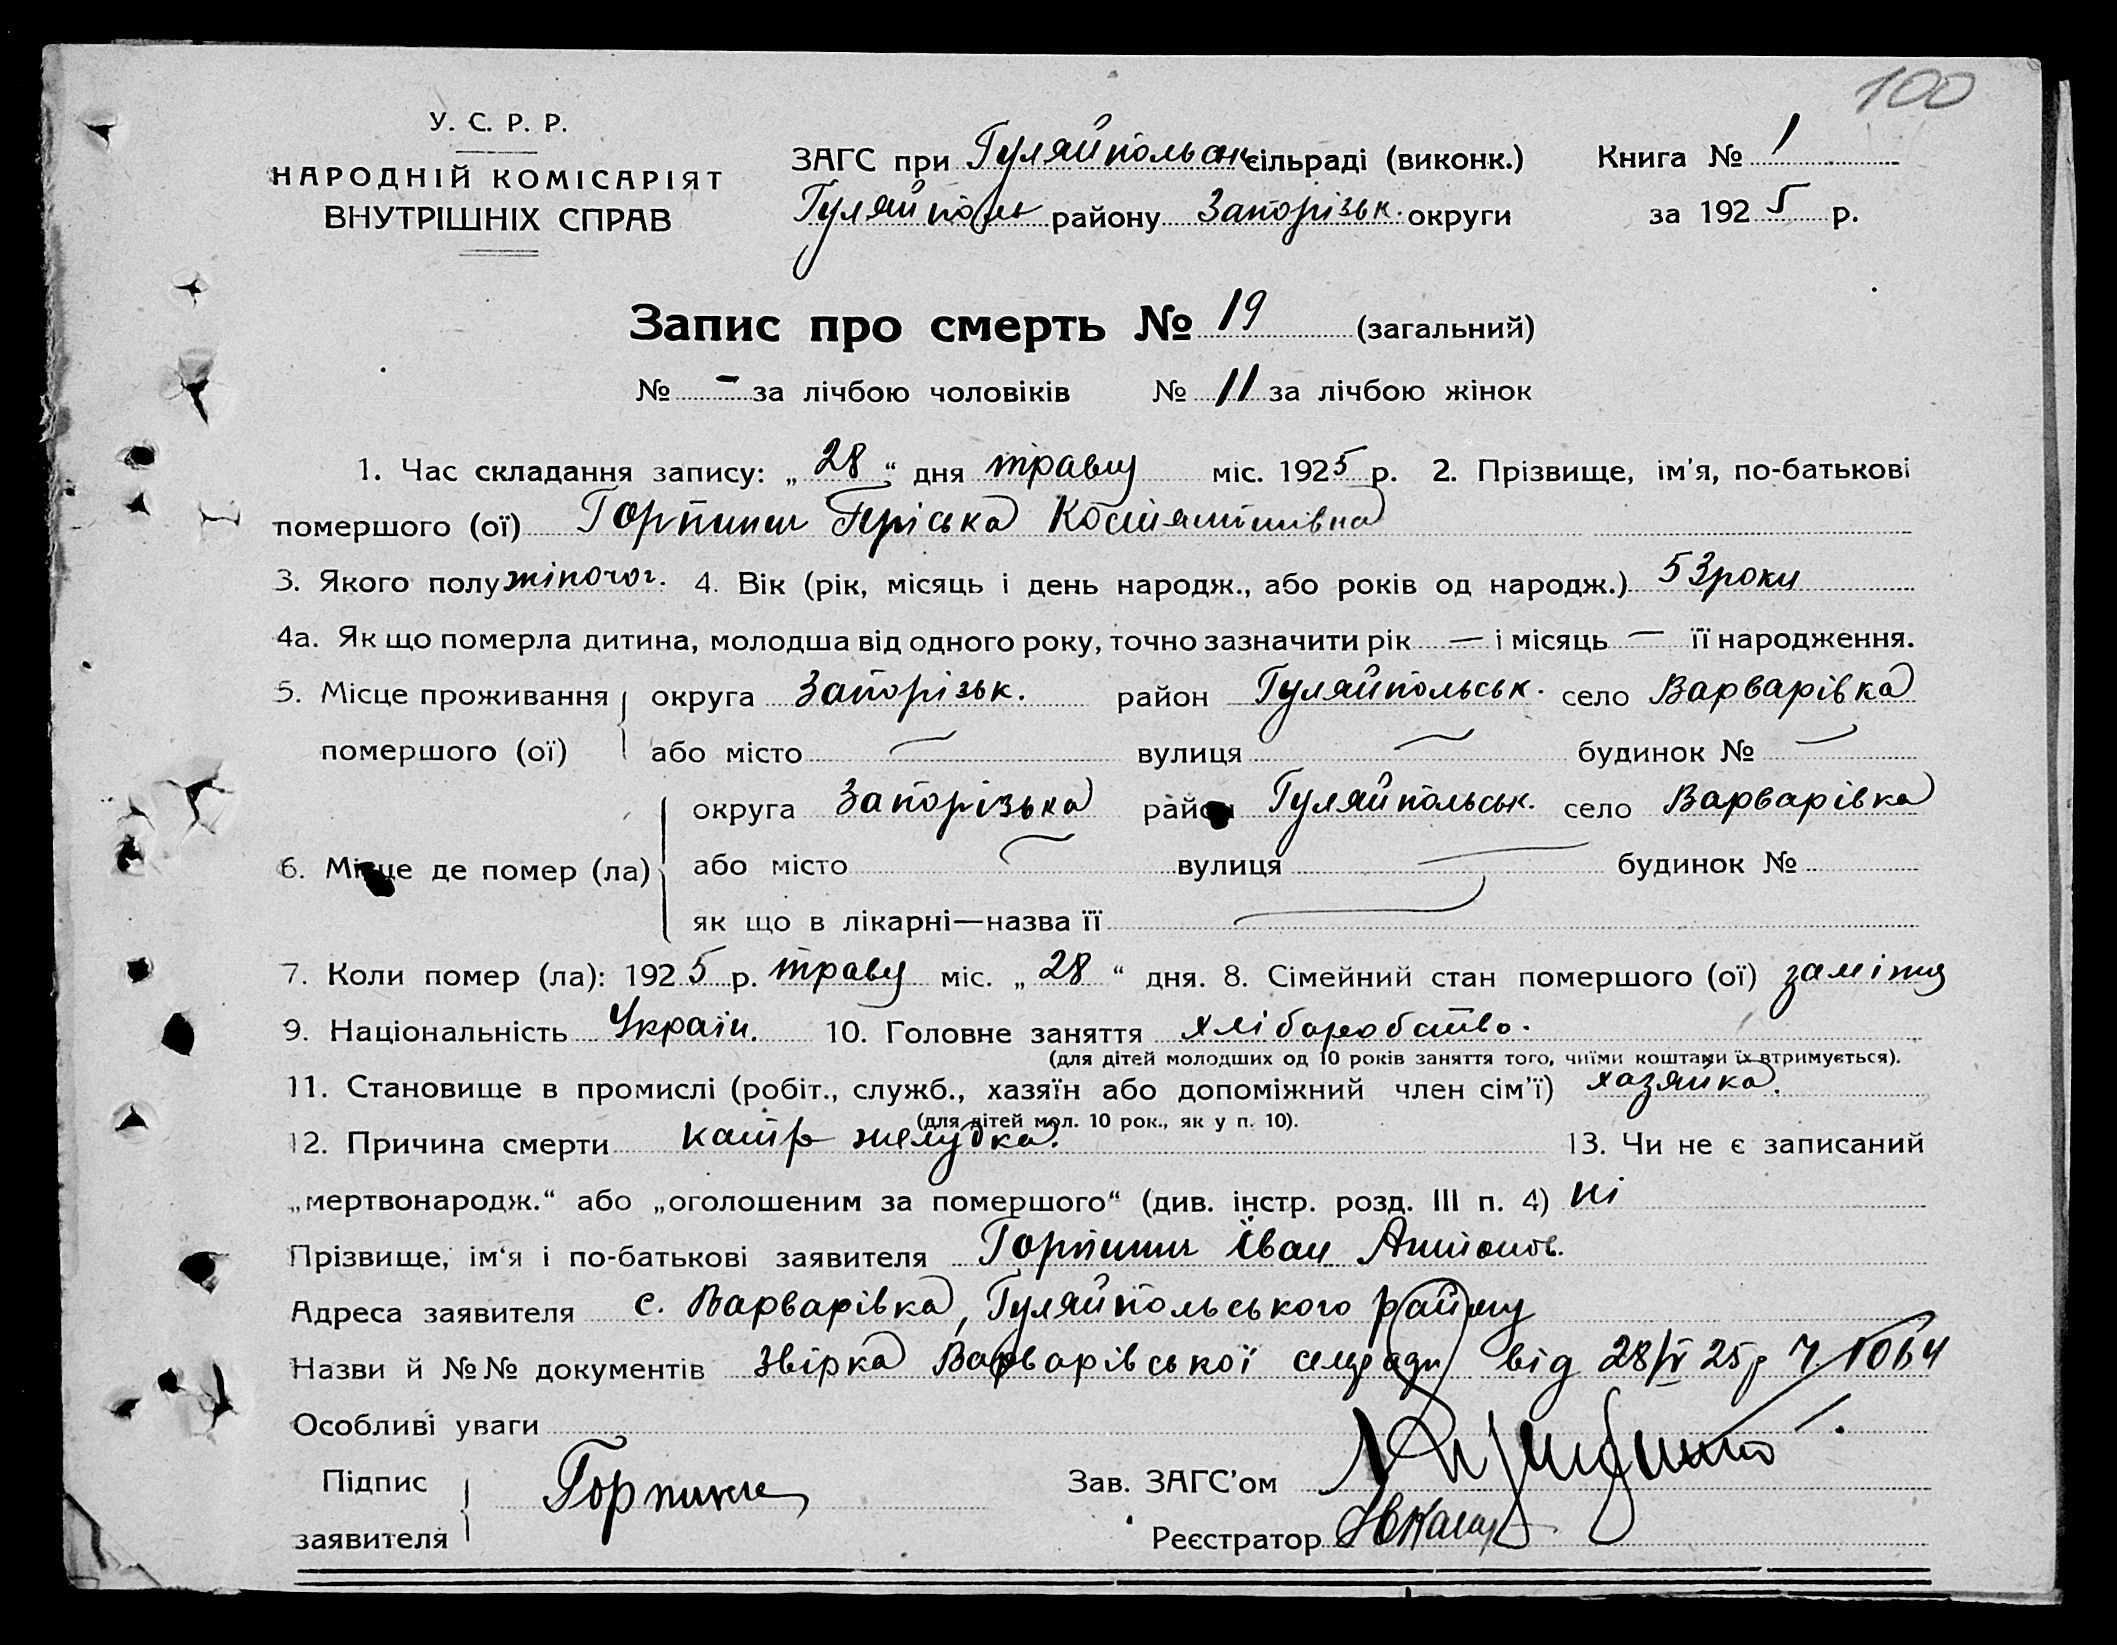 100
У. С. Р. Р.
НАРОДНІЙ КОМІСАРІЯТ
ВНУТРІШНІХ СПРАВ
ЗАГС при Гуляйпольск сільраді (виконк.) Книга № 1
Гуляйполь району Запорізьк. округи за 1925 р.
Запис про смерть № 19 (загальний)
№ – за лічбою чоловіків № 11 за лічбою жінок
1. Час складання запису: „28“ дня травня міс. 1925 р. 2. Прізвище, ім'я, по-батькові
помершого (ої) Горпинич Пріська Костянтинівна
3. Якого полу жіночог. 4. Вік (рік, місяць і день народж., або років од народж.) 53 роки
4а. Як що померла дитина, молодша від одного року, точно зазначити рік — і місяць — її народження.
5. Місце проживання округа Запорізьк. район Гуляйпольськ. село Варварівка
помершого (ої) або місто — вулиця — будинок № —
округа Запорізька район Гуляйпольськ. село Варварівка
6. Місце де помер (ла) або місто — вулиця — будинок №
як що в лікарні—назва її —
7. Коли помер (ла): 1925 р. травня міс. „28“ дня. 8. Сімейний стан помершого (ої) заміжня
9. Національність Україн. 10. Головне заняття хліборобство.
(для дітей молодших од 10 років заняття того, чиїми коштами їх втримується).
11. Становище в промислі (робіт., служб., хазяїн або допоміжний член сім'ї) хазяйка.
(для дітей мол. 10 рок., як у п. 10).
12. Причина смерти катар желудка. 13. Чи не є записаний
„мертвонародж.“ або „оголошеним за помершого“ (див. інстр. розд. III п. 4) ні
Прізвище, ім'я і по-батькові заявителя Горпинич Іван Антонов.
Адреса заявителя с. Варварівка, Гуляйпольського району
Назви й №№ документів Звірка Варварівської сільради від 28/V 25р Ч. 1064
Особливі уваги
Підпис Зав. ЗАГС'ом
заявителя Горпинич Реєстратор